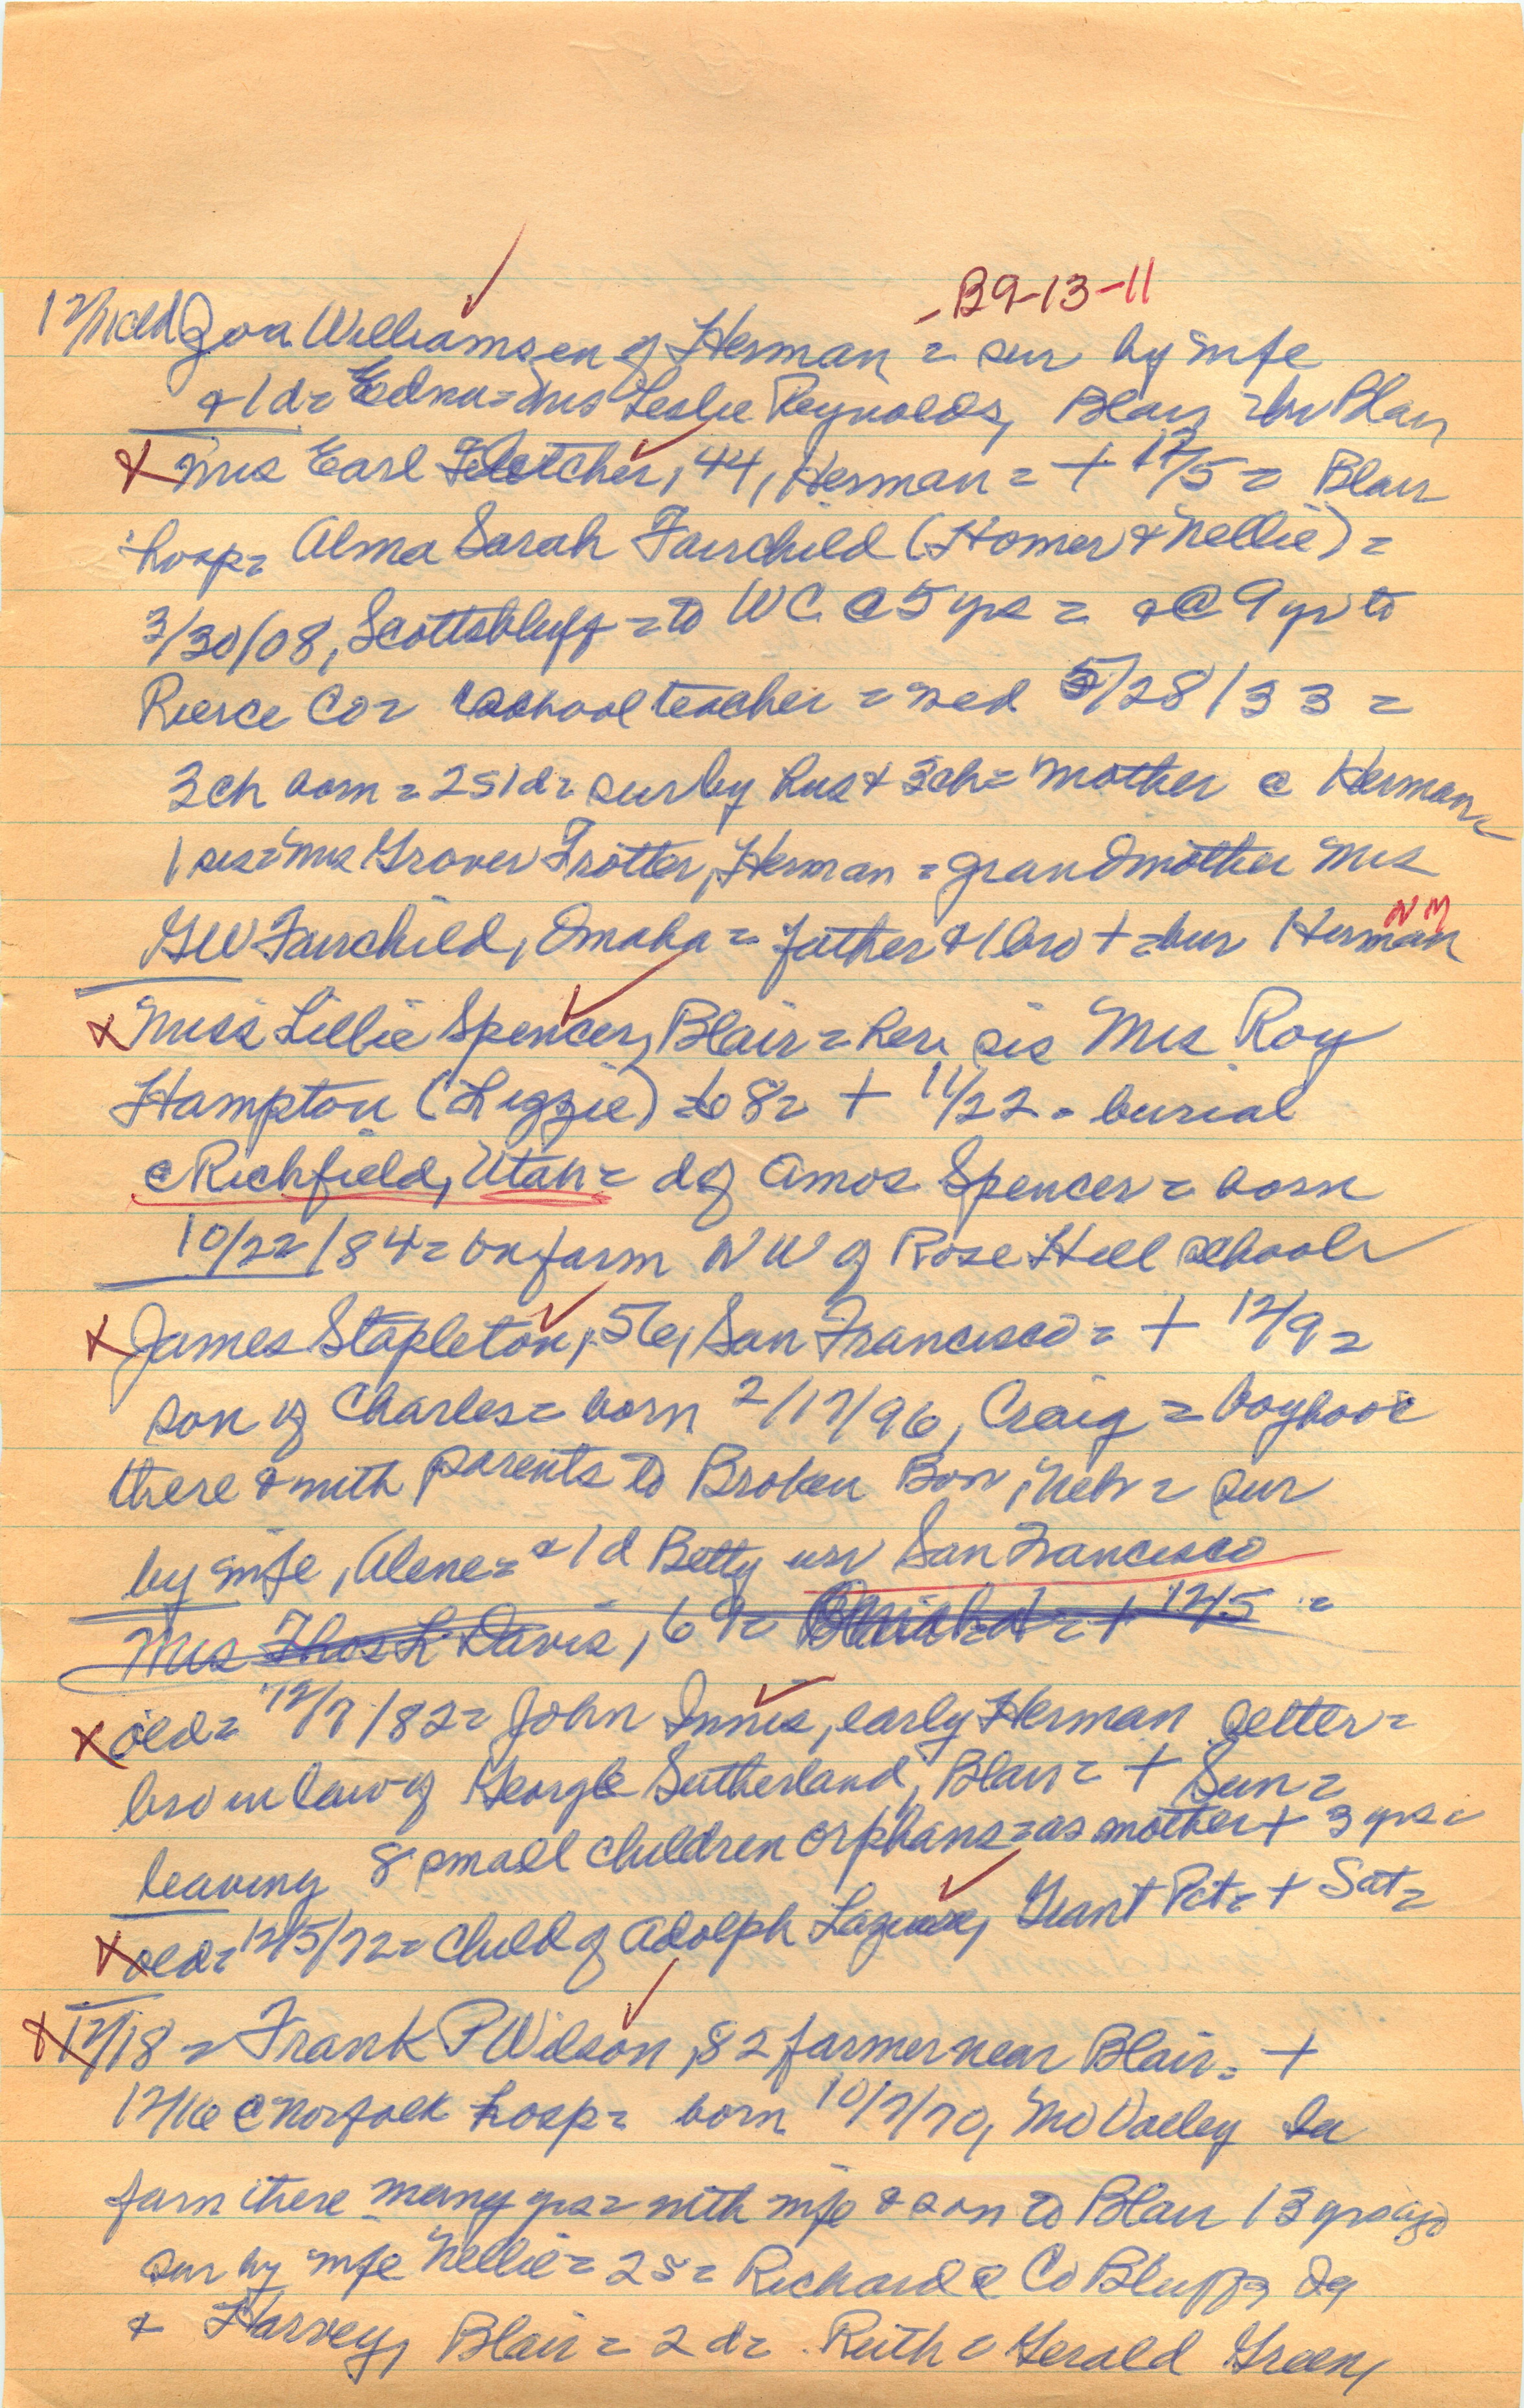 - B9-13-11
12/11 old Joa Williamsen of Herman = sur by wife
+ 1 d = Edna = Mrs Leslie Reynolds, Blair = bu Blair
x Mrs Earl Fletcher, 44, Herman = + 12/5 = Blair
hosp = Alma Sarah Fairchild (Homer & Nellie) =
3/30/08, Scottsbluff = to WC @ 5 yrs = & @ 9 yr to
Pierce Co = school teacher = wed 5/28/33 =
3 ch born = 2 s 1 d = sur by hus & 3 ch = mother @ Herman =
1 sis = Mrs Grover Trotter, Herman = grandmother Mrs
NM
GW Fairchild, Omaha = father & 1 bro + = bur Herman
x Miss Lillie Spencer, Blair = her sis Mrs Roy
Hampton (Lizzie) = 68 = + 11/22 = burial
@ Richfield, Utah = d of Amos Spencer = born
10/22/84 = on farm NW of Rose Hill school
x James Stapleton, 56, San Francisco = + 12/9 =
son of Charles = born 2/17/96, Craig = boyhood
there & with parents to Broken Bow, Neb = sur
by wife, Alene = & 1 d Betty San Francisco
Mrs Thos L Davis, 69 = + 12/5 =
x old = 12/7/82 = John Innis, early Herman settler =
bro in law of George Sutherland, Blair = + Sun =
leaving 8 small children orphans = as mother + 3 yrs =
x old = 12/5/72 = Child of Adolph Grant Pct = + Sat =
x 12/18 = Frank P Wilson, 82 farmer near Blair = +
12/16 @ Norfolk hosp = born 10/7/70, Mo Valley Ia
farm there many yrs = with wife & son to Blair 13 yrs ago
sur by wife Nellie = 2 s = Richard @ Co Bluffs Ia
& Harvey, Blair = 2 d = Ruth = Gerald Green,